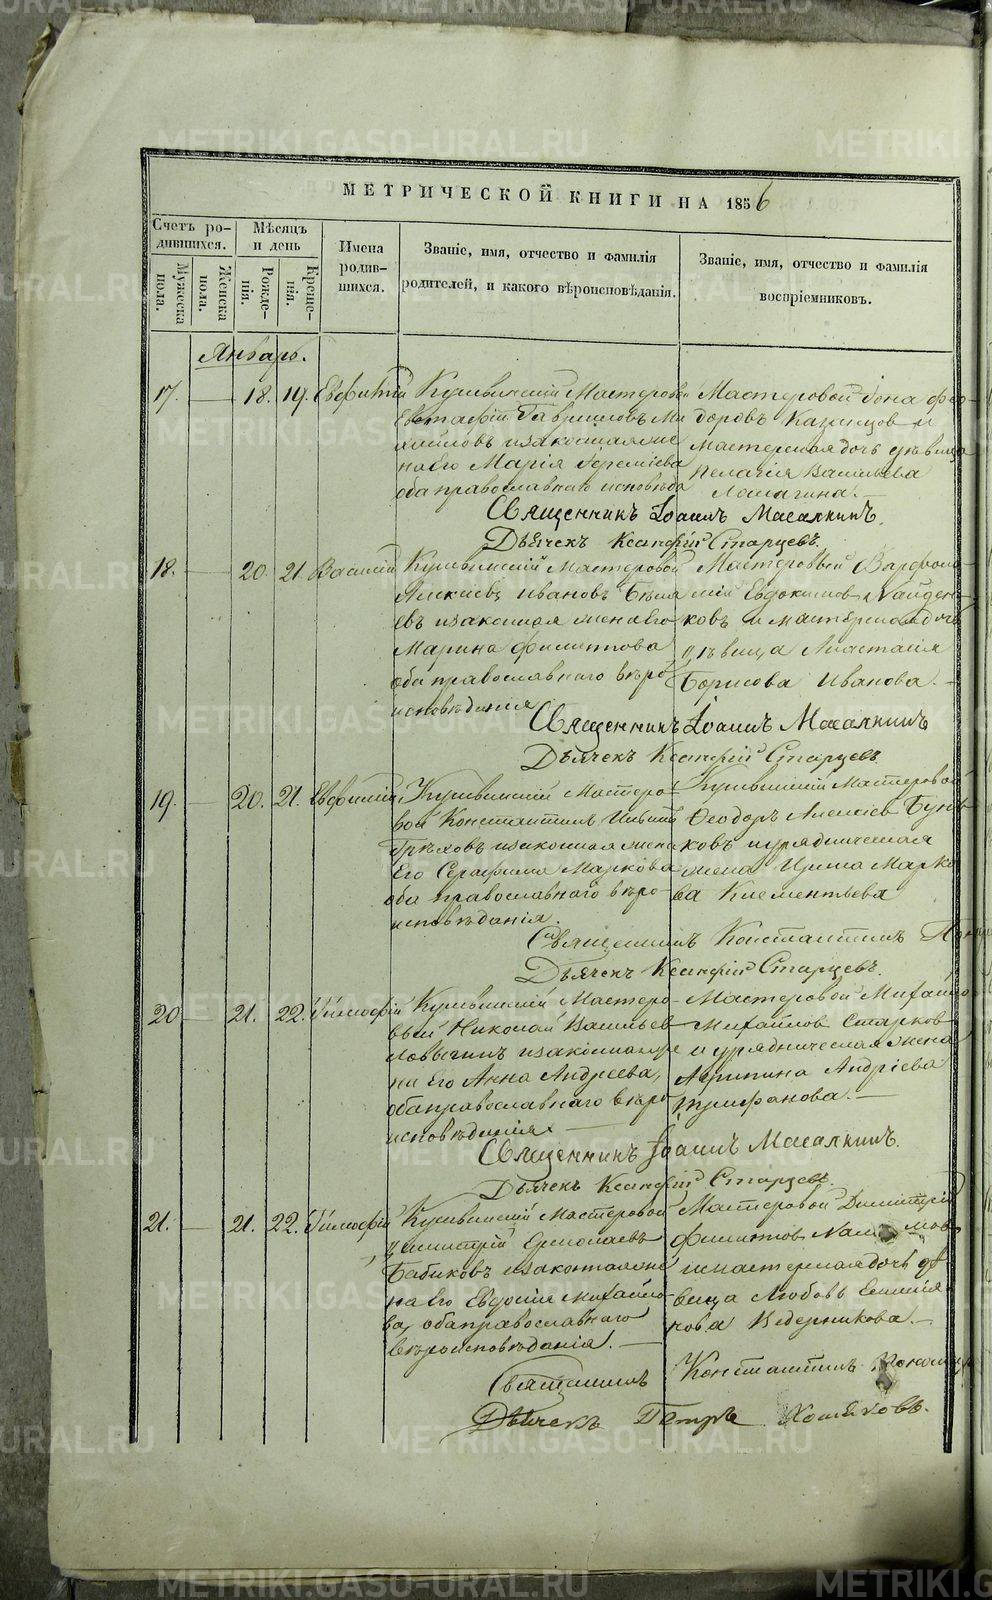 МЕТРИЧЕСКОЙ КНИГИ НА 1856
Счетъ ро-
дившихся.
Мужеска
пола.
Женска
пола.
Мѣсяцъ
и день
Рожде-
нія.
Креще-
нія.
Имена
родив-
шихся.
Званіе, имя, отчество и фамилія
родителей, и какого вѣроисповѣданія.
Званіе, имя, отчество и фамилія
воспріемниковъ.
Январь.
17. 18. 19. Евфимій
Кушвинскій Мастерово
Евстафій Гавриловъ Ми
хайловъ и законная же
на его Марія Іеремѣева
оба православнаго исповѣда
Мастеровой Іона Фео-
доровъ Казанцов и
мастерская дочь дѣвица
Пелагія Васильева
Ломагина.
Священникъ Іоаннъ Масалкинъ.
Дьячекъ Ксанфій Старцевъ.
18. 20. 21. Василій
Кушвинскій Мастеровой
Ивановъ
евъ и законная жена его
Марина Филиппова
оба православнаго вѣро
исповѣданія
Мастеровый Варфоло-
мій Евдокимов Найден-
ковъ и мастерская дочь
дѣвица Анастасія
Борисова Иванова.
Священникъ Іоаннъ Масалкинъ
Дьячекъ Ксанфій Старцевъ.
19. 20. 21. Евфимій
Кушвинскій Мастеро-
вой Константинъ
Грѣховъ и законная жена
его Серафима Маркова
оба православнаго вѣро-
исповѣданія.
Кушвинскій Мастеровой
Феодоръ Алексѣев Бунь-
ковъ и урядническая
жена Ирина Марко
ва Клементьева
Священникъ Константинъ
Дьячекъ Ксанфій Старцевъ.
20 21. 22. Тимофій
Кушвинскій Мастеро-
вый Николай Васильев
и законная же
на его Анна Андреева,
оба православнаго вѣро
исповѣданія
Мастеровой Михайло
Михайлов Старков
и урядническая жена
Агрипина Андріева
Труфанова.
Священникъ Іоаннъ Масалкинъ.
Дьячекъ Ксанфій Старцевъ.
21. 21. 22. Тимофій
Кушвинскій Мастеровой
Димитрій Ермолаевъ
Бабиковъ и законная же
на его Евдокія Михайло-
ва, оба православнаго
вѣроисповѣданія.
Мастеровой Димитрій
Филиппов
и мастерская дочь дѣ
вица Любовь
нова Ведерникова.
Священникъ Константинъ
Дьячекъ Петръ Хомяковъ.
METRIKI.GASO-URAL.RU